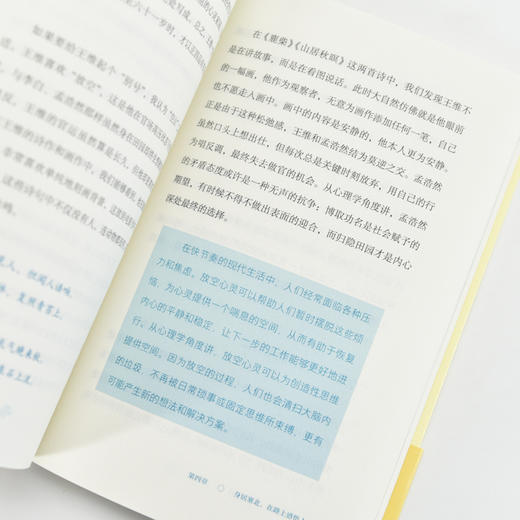 六十一岁时，才以
如果要给王维起个“别号”，我认为“
王维喜欢“放空”，这是他在官场
与李白、孟浩然那样虽然身在田园
，王维的官运虽然算是长久，但
在王维的诗作中，我们能够看
常喜欢单纯地刻画背景，
这些诗句中不仅没有人，
吗。
人，但闻人语响。
，复照青苔上。
天气晚来秋。
在《鹿柴》《山居秋暝》这两首诗中，我们发现王维不
是在讲故事，而是在看图说话。此时大自然仿佛就是他眼前
的一幅画，他作为观察者，无意为画作添加任何一笔，自己
也不愿走入画中。画中的内容是安静的，他本人更为安静。
正是由于这种松弛感，王维和孟浩然结为莫逆之交。孟浩然
虽然口头上想出仕，但每次总是关键时刻放弃，用自己的行
为唱反调，最终失去做官的机会。从心理学角度讲，孟浩然
的矛盾态度或许是一种无声的抗争：博取功名是社会赋予的
期望，有时候不得不做出表面的迎合，而归隐田园才是内心
深处最终的选择。
在快节奏的现代生活中，人们经常面临各种压
力和焦虑。放空心灵可以帮助人们暂时摆脱这些烦
恼，为心灵提供一个喘息的空间，从而有助于恢复
内心的平静和稳定，让下一步的工作能够更好地进
行。从心理学角度讲，放空心灵可以为创造性思维
提供空间。因为放空的过程，人们也会清扫大脑内
的垃圾，不再被日常琐事或固定思维所束缚，更有
可能产生新的想法和解决方案。
第四章
身居塞北，在路上感悟人